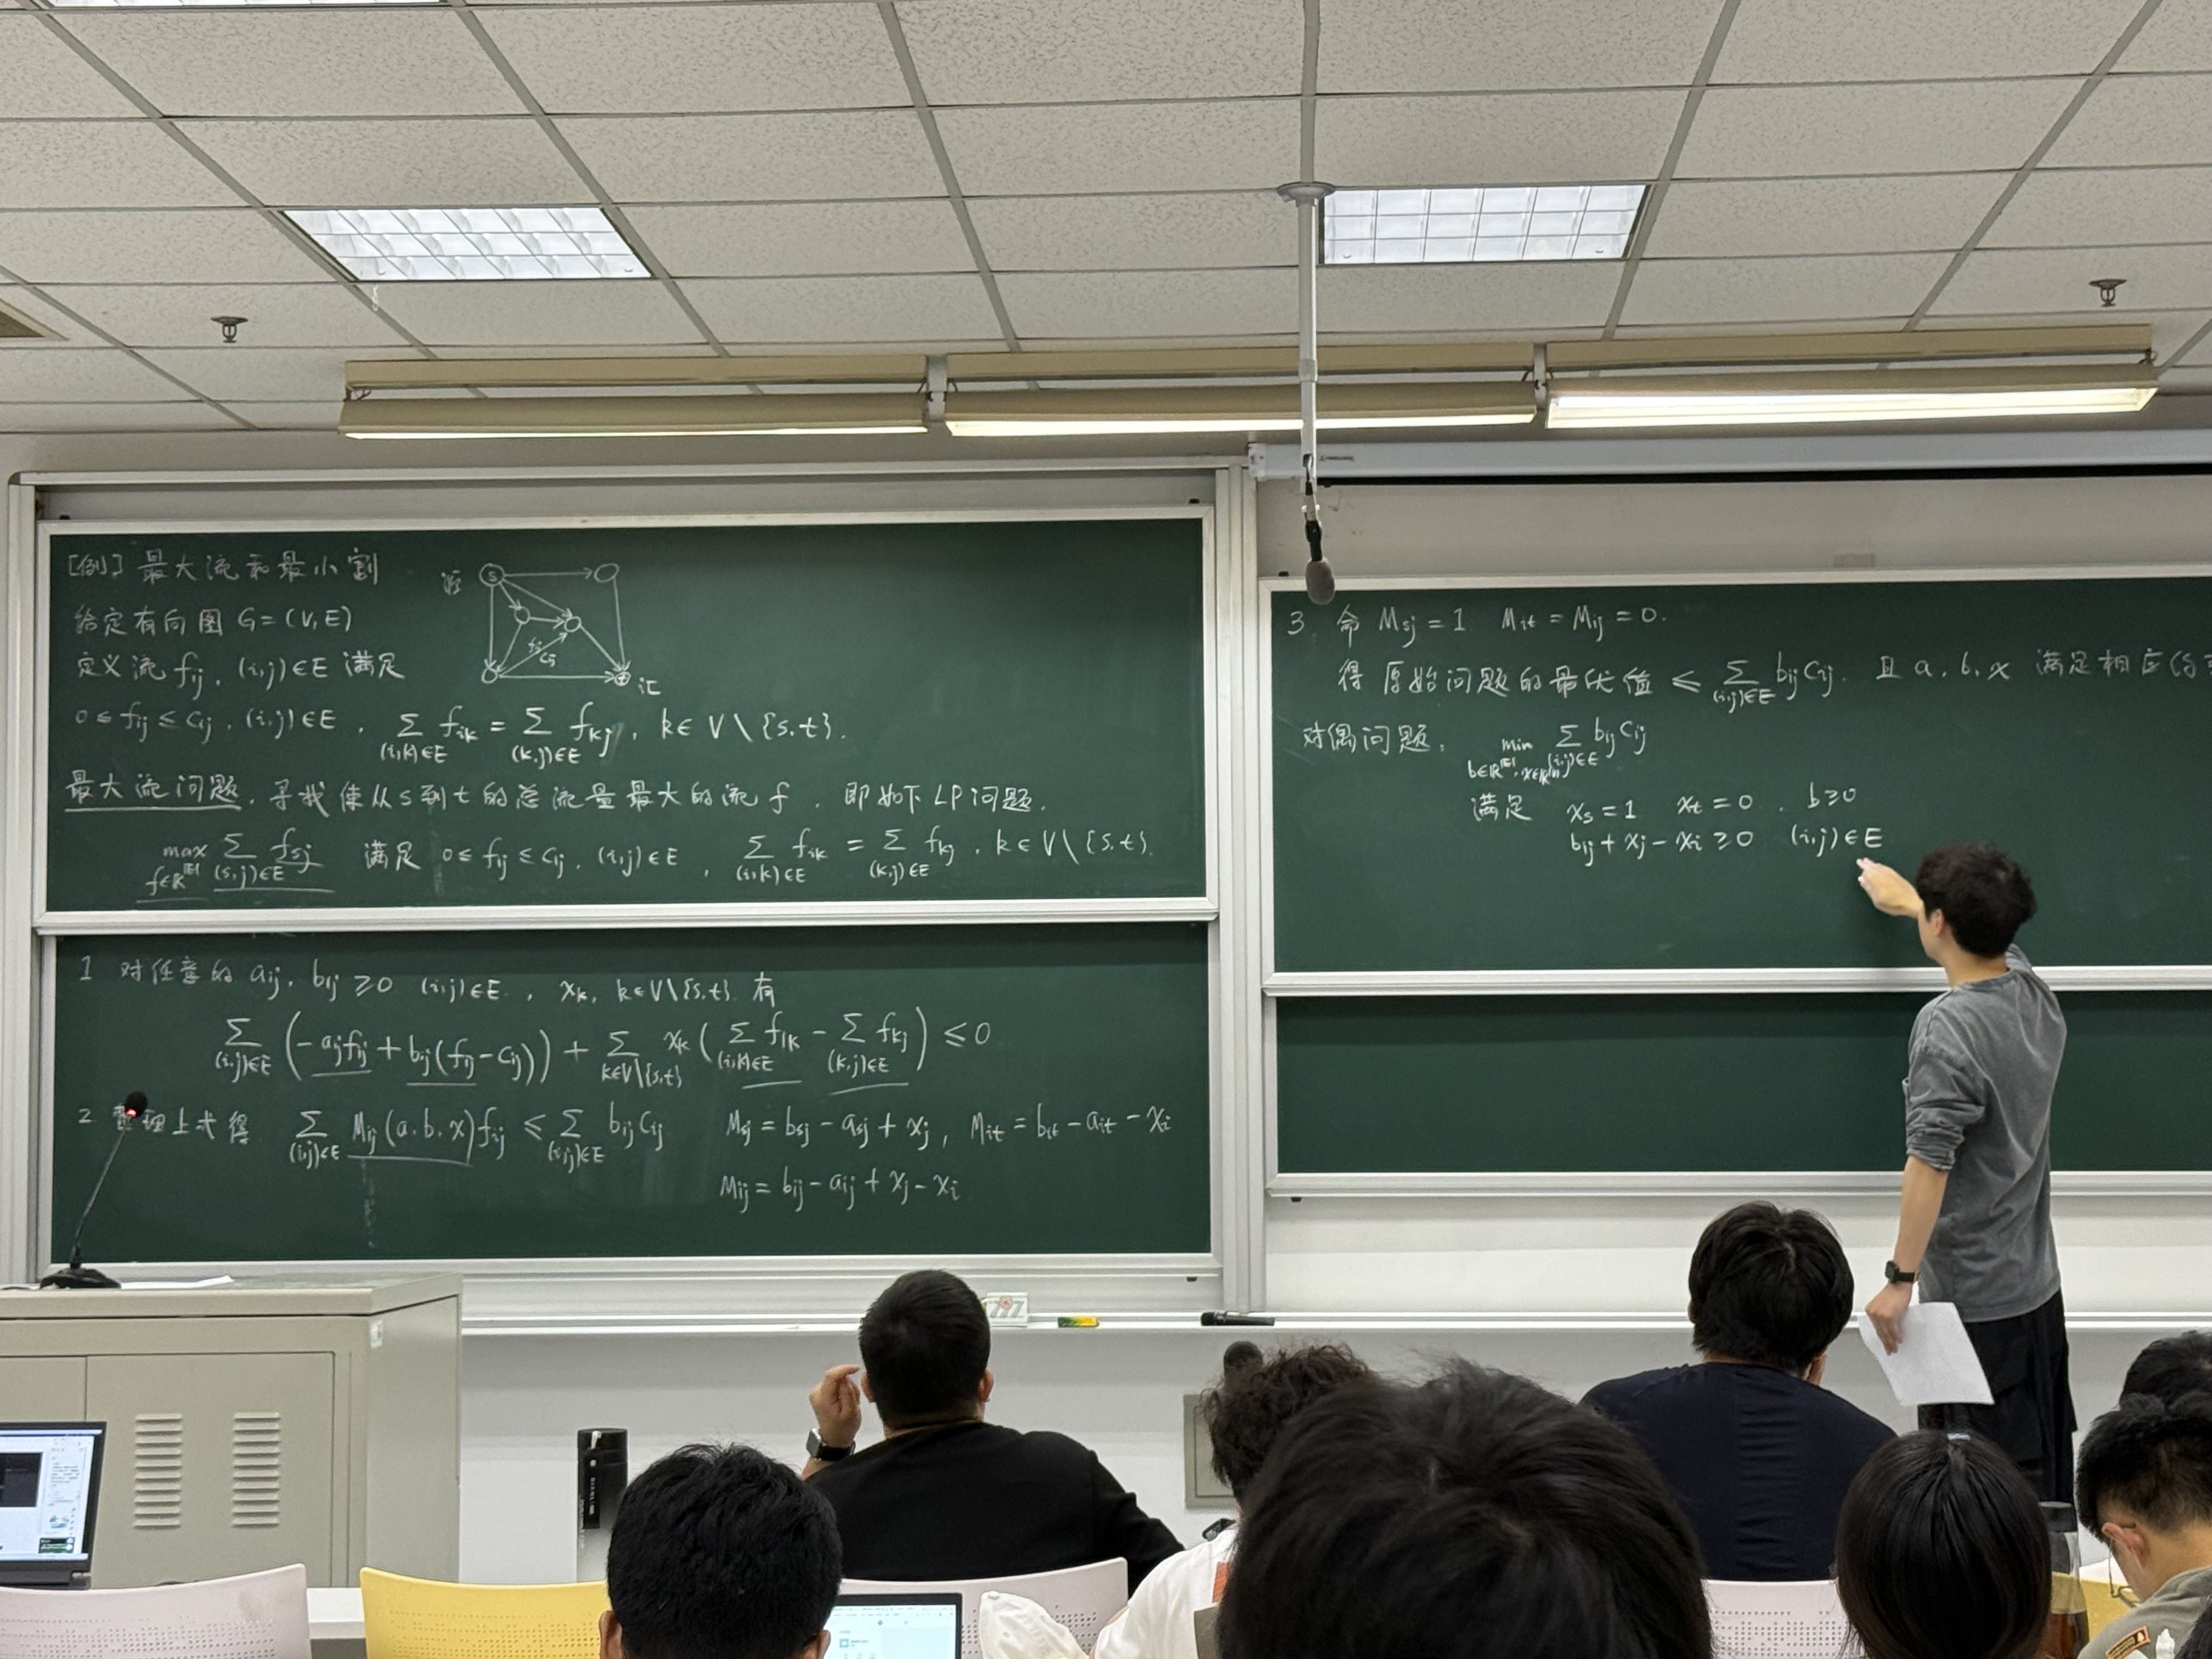 [例] 最大流和最小割
给定有向图 G=(V,E)
定义流 fij, (i,j)∈E 满足
源 S
fij
Cij
t 汇
0≤fij≤Cij, (i,j)∈E, ∑(i,k)∈E fik = ∑(k,j)∈E fkj, k∈V\{s,t}.
最大流问题. 寻找使从s到t的总流量最大的流f, 即如下LP问题.
max f∈R^|E| ∑(s,j)∈E fsj 满足 0≤fij≤Cij, (i,j)∈E, ∑(i,k)∈E fik = ∑(k,j)∈E fkj, k∈V\{s,t}.
1 对任意的 aij, bij≥0 (i,j)∈E, xk, k∈V\{s,t} 有
∑(i,j)∈E (-aijfij + bij(fij-Cij)) + ∑k∈V\{s,t} xk (∑(i,k)∈E fik - ∑(k,j)∈E fkj) ≤0
2 整理上式得 ∑(i,j)∈E Mij(a,b,x)fij ≤ ∑(i,j)∈E bijCij Msj = bsj - asj + xj, Mit = bit - ait - xi
Mij = bij - aij + xj - xi
3 命 Msj = 1 Mit = Mij = 0.
得原始问题的最优值 ≤ ∑(i,j)∈E bijCij. 且 a, b, x 满足相应
对偶问题. min b∈R^|E|, x∈R^|V| ∑(i,j)∈E bijCij
满足 xs = 1 xt = 0, b≥0
bij + xj - xi ≥0 (i,j)∈E